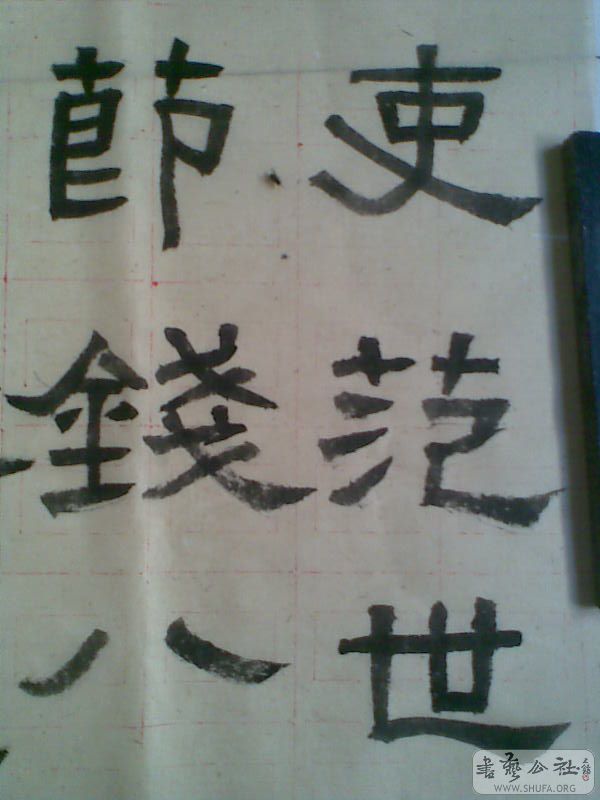 吏范世
節錢八
書藝公社
WWW.SHUFA.ORG